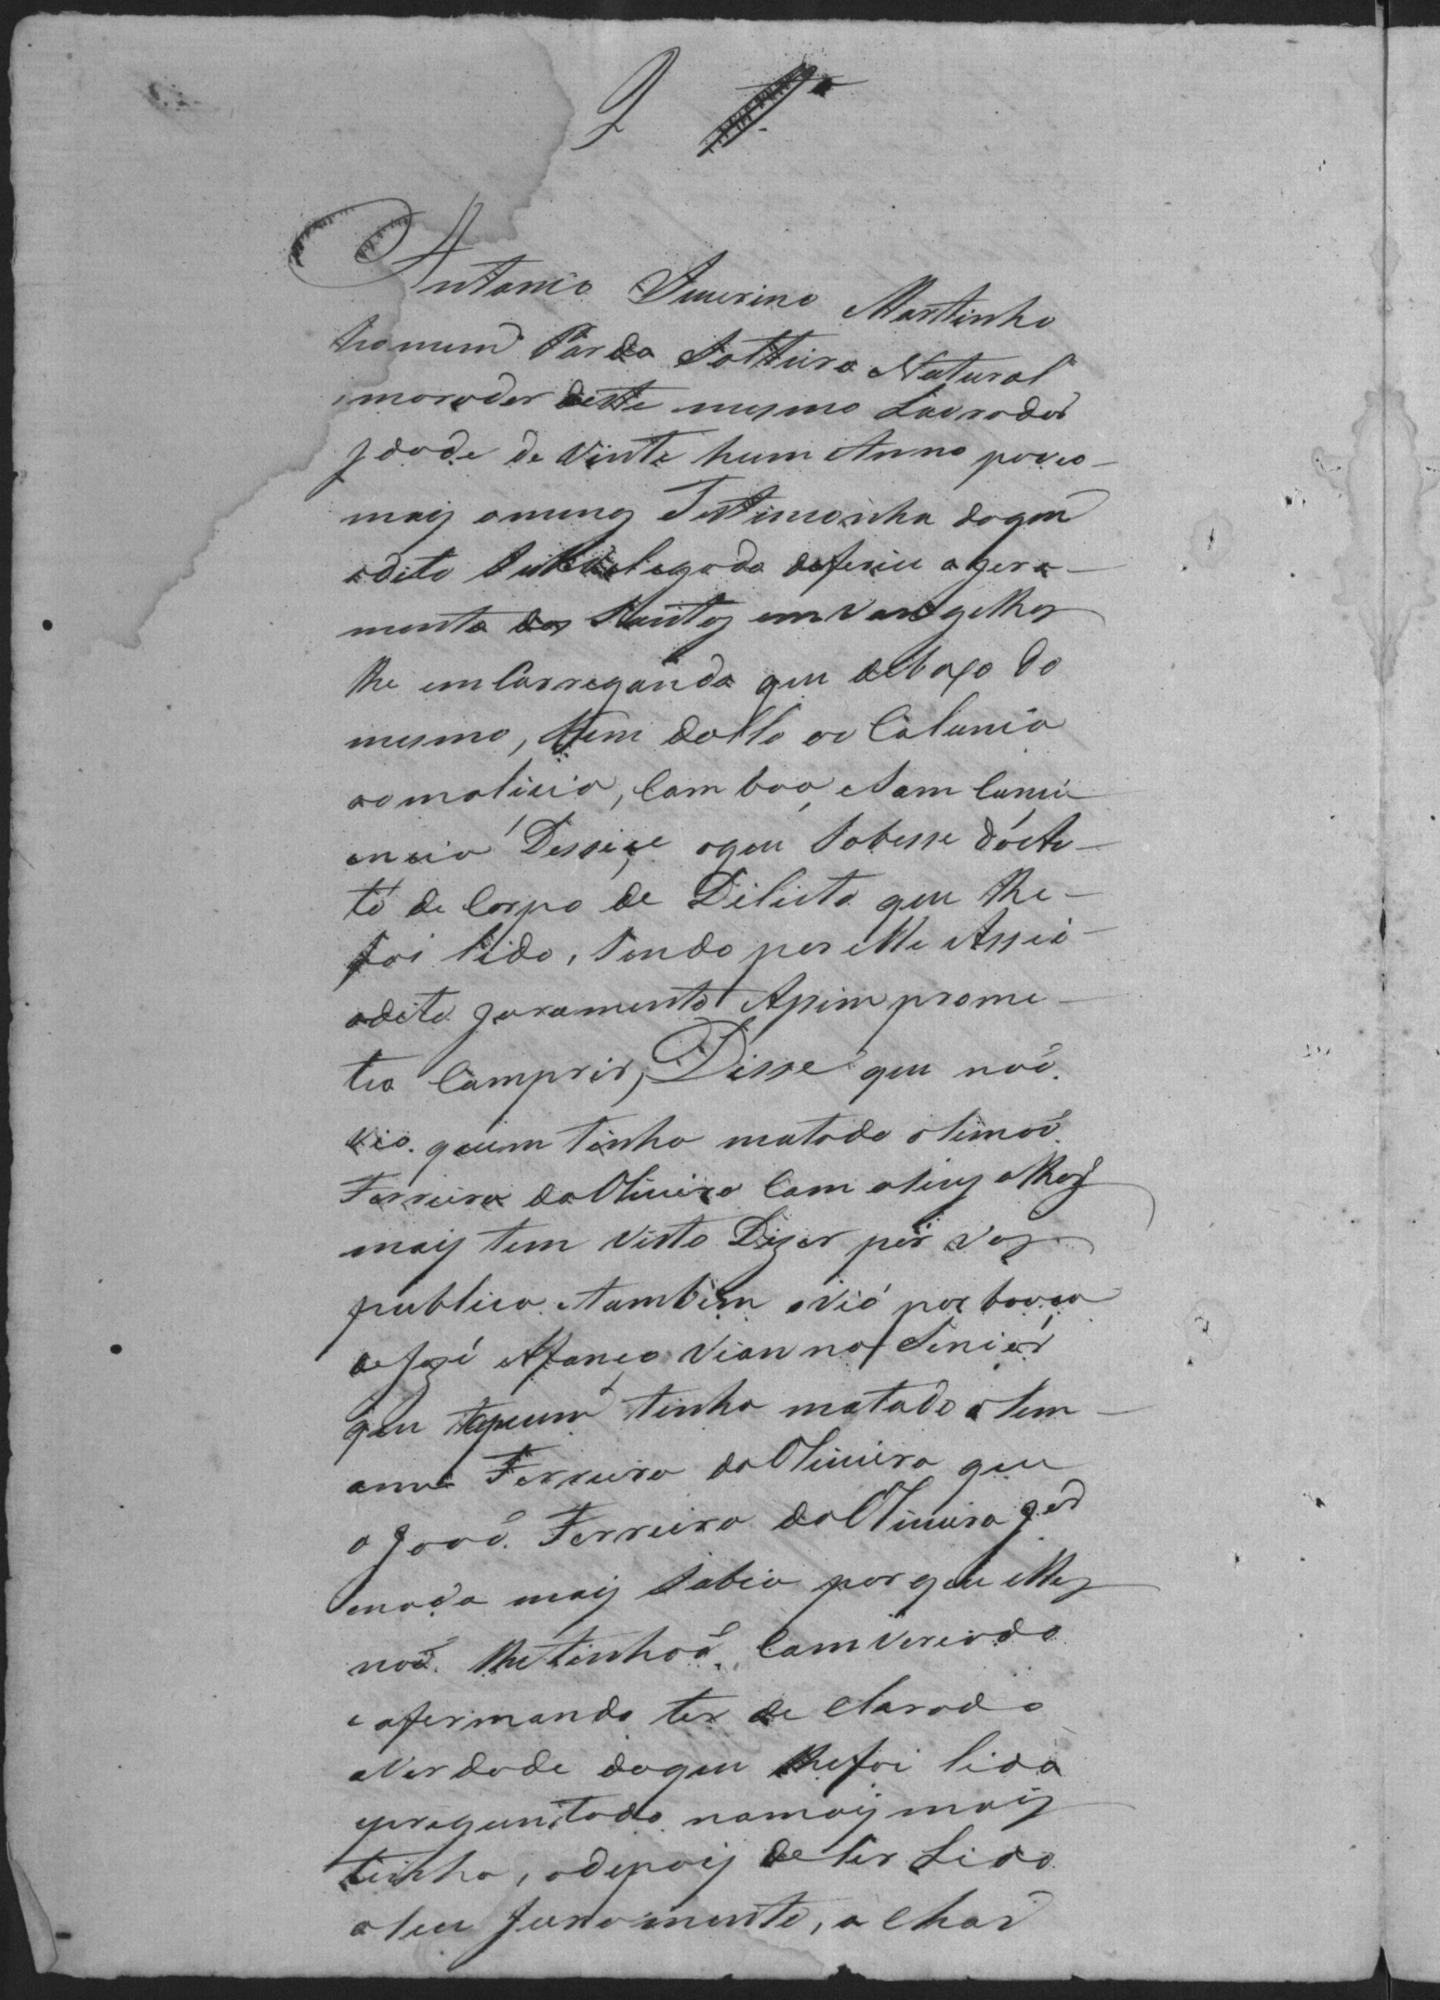 2
Antonio Severino Martinho
homem Pardo Solteiro Natural
morador deste mesmo Lavrador
Jdade de Vinte hum Anno pouco
mais omenos Testimonha doqem
odito Subdelegado deferiu ojera-
mento dos Santos emvangelhos
lhe emCarregando qeu debaxo do
mesmo, sem dollo ou Calunia
ou malicia, Com boa, eSam Cunci
encia Dessese oqeu Sobesse do Au-
to de Corpo de Delicto qeu lhe-
foi lido, Sendo por elle Asseio
odito Joramento Asim prome-
teo Comprir, Disse qeu naõ.
vio. quem tinha matado oSimaõ
Ferreira daOliveira Com oseus olhos
mais tem visto Dizer por vos
publica eTambem ovio por bouca
deJozé Afonço Vianna Senior
qeu quem tinha matado oSem-
ama Ferreira daOliveira qeu
o Joaõ. Ferreira daOliveira
enada mais Sabia porqeu elles
naõ. lhetinhaõ. Comverçado
eafermando ter de Clarado
aVerdade doqeu lhefoi lido
epreguntado namais mais
tinha, odepois deler Lido
oseu Juramento, o achar